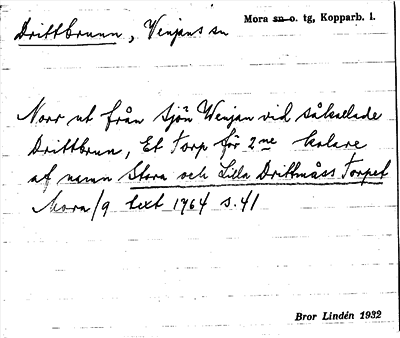 Drittbrunn, Venjans sn
Mora sn o. tg, Kopparb. l.
Norr ut från sjön Wenjan vid såkallade
Drittbrun, Et Torp för 2ne kolare
af namn Stora och Lilla Drittmåss Torpet
Mora/9 text 1764 s.41
Bror Lindén 1932